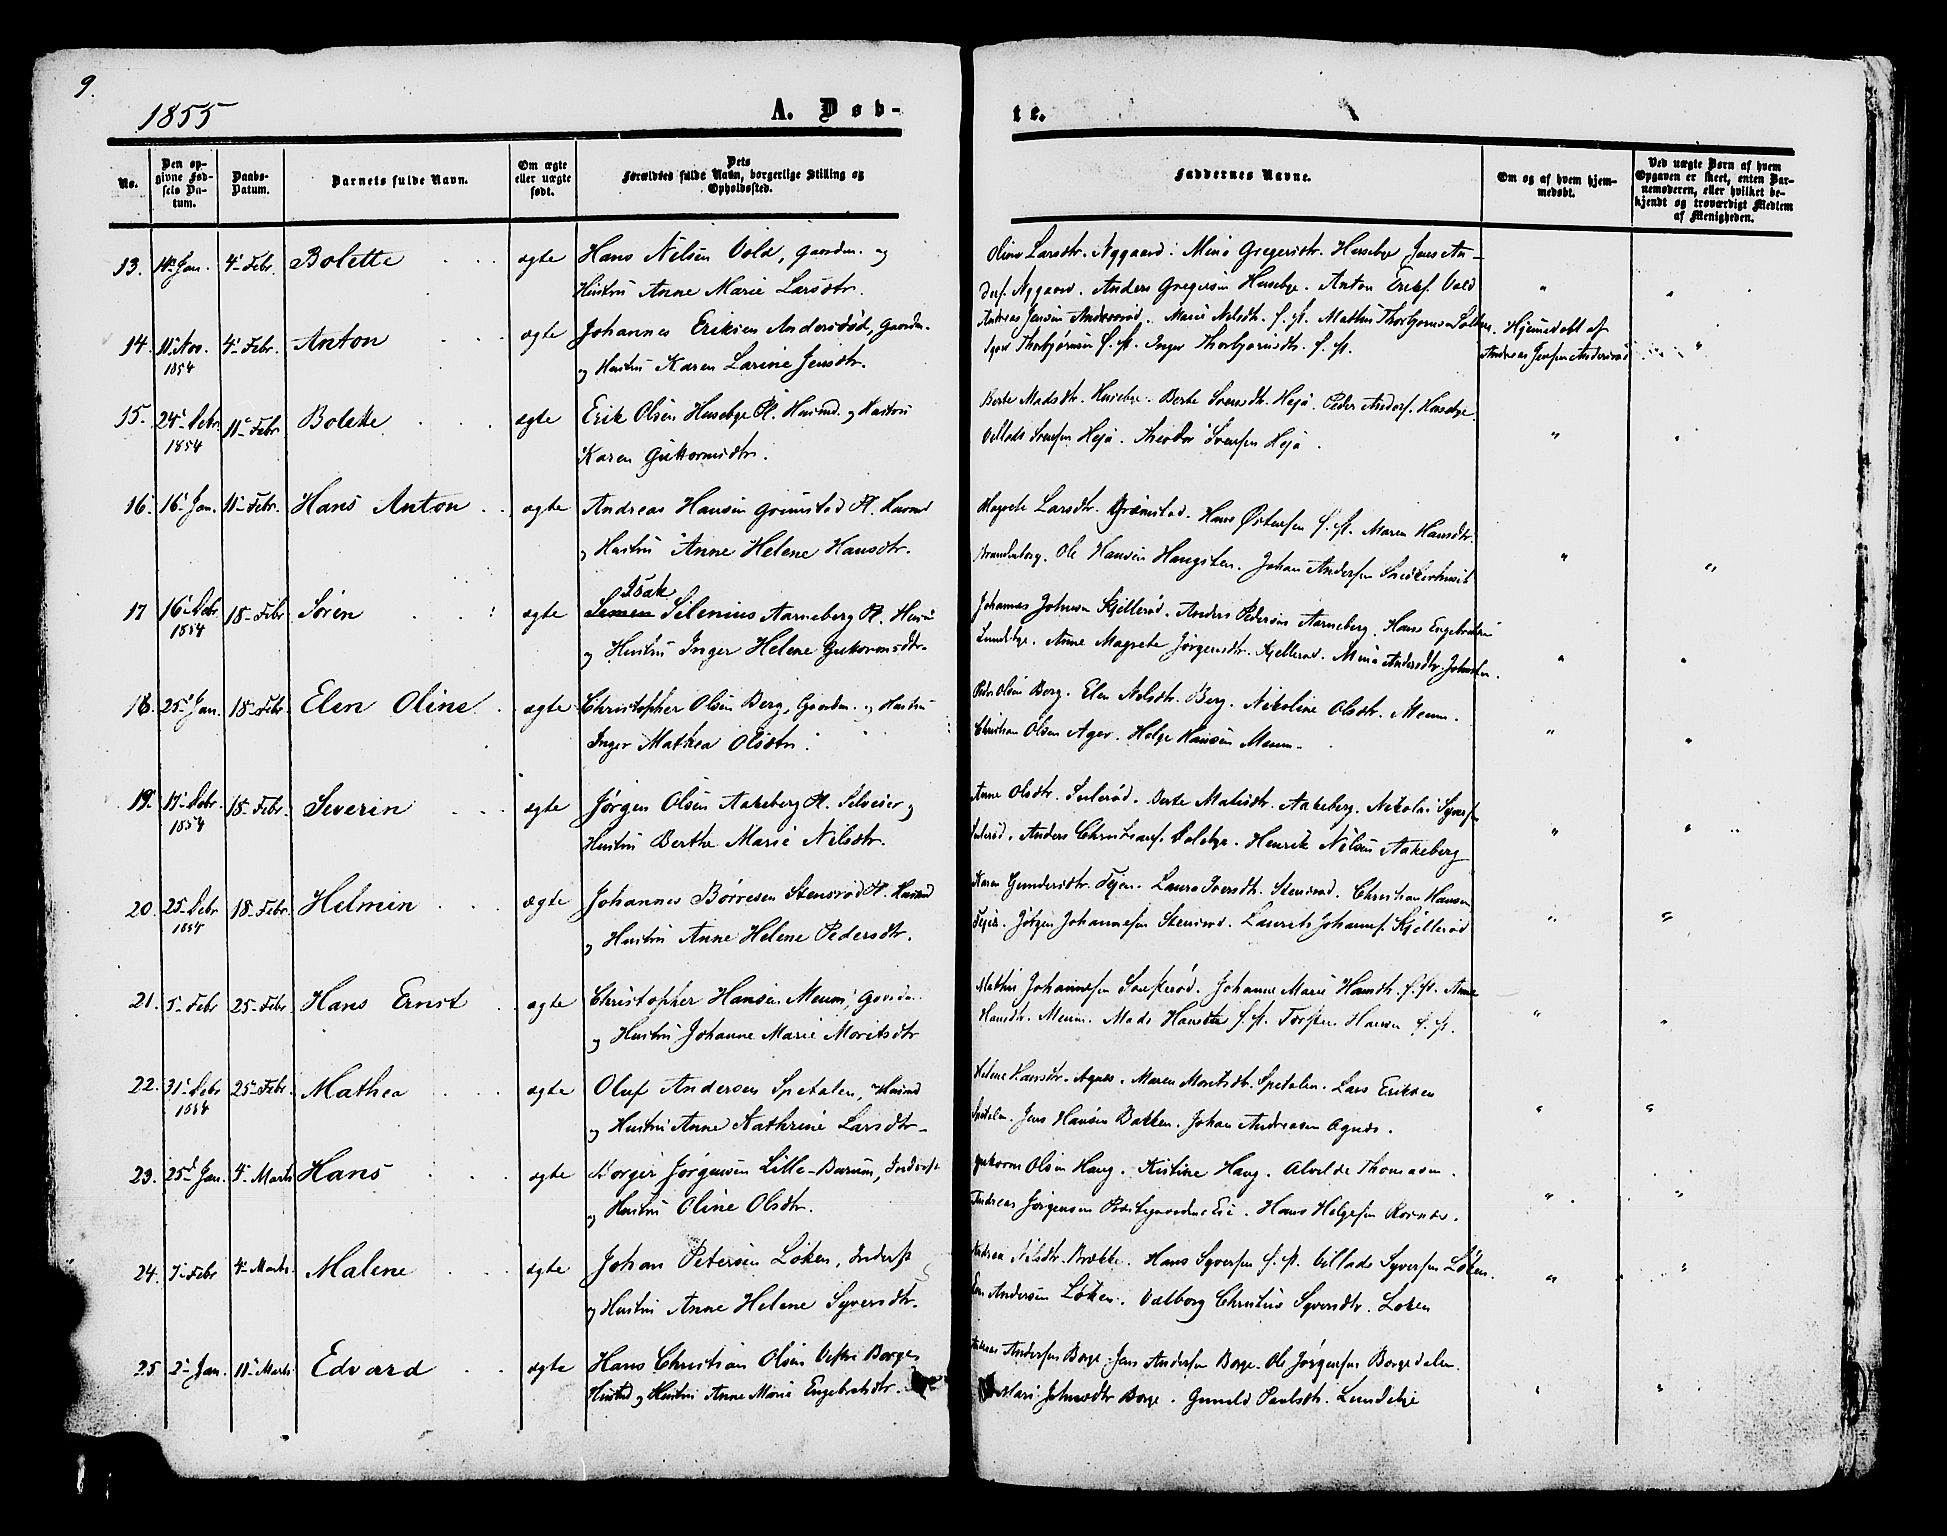 9.
1855
A. Døb-
te.
No.
Den op-
givne Fød-
sels Da-
tum.
Daabs-
Datum.
Barnets fulde Navn.
Om ægte
eller uægte
født.
Dets
Forældres fulde Navn, borgerlige Stilling og
Opholdssted.
Faddernes Navne.
Om og af hvem hjem-
medøbt.
Ved uægte Børn af hvem
Opgaven er skeet, enten Bar-
nemoderen, eller hvilket be-
kjendt og troværdigt Medlem
af Menigheden.
13. 14 Jan. 4 Febr. Bolette ægte Hans Nilsen Vold, Gaardm. og
Hustru Anne Marie Larsdtr.
Larsdtr. Nygaard. Gregersdtr. Husebye Jens An-
ders. Nygaard. Anders Gregersen Husebye. Anton Eriks. Vold " "
14. 11 Nov. 4 Febr. Anton ægte Johannes Eriksen Andersrød, Gaardm.
1854
og Hustru Karen Larine Jensdtr.
Andreas Jensen Andersrød. Marie Nilsdtr. s. st. Mathis Thorbjørnsen
Thorbjørnsen s. st. Inger Thorbjørnsdtr. s. st.
Hjemmedøbt af
Andreas Jensen Andersrød "
15. 24 Debr. 11 Febr. Bolette ægte Erik Olsen Husebye Pl. Husmd. og Hustru
1854
Karen Guttormsdtr.
Berte Madsdtr. Husebye. Berte Svensdtr. Hejä. Peder Anders. Husebye.
Svensen Hejä. Theodor Svensen Hejä. " "
16. 16 Jan. 11 Febr. Hans Anton ægte Andreas Hansen Grimstad Pl. Husmd
og Hustru Anne Helene Hansdtr.
Magrete Larsdtr. Grimstad. Hans Østensen s. st. Maren Hansdtr.
Ole Hansen Haugsten. Johan Andersen " "
17 16 Debr. 18 Febr. Søren ægte Isak
1854
Simen Silenius Aarneberg Pl.
og Hustru Inger Helene Guttormsdtr.
Johannes Johnsen Kjellerød. Anders Pedersen Aarneberg. Hans Engebretsen
Lundebye. Anne Magrete Jørgensdtr. Kjellerød. Andersdtr. " "
18. 25 Jan. 18 Febr. Elen Oline ægte Christopher Olsen Berg, Gaardm. og Hustru
Inger Mathea Olsdtr.
Peder Olsen Berg. Elen Nilsdtr. Berg. Nikoline Olsdtr. Meum.
Christian Olsen Ager. Helge Hansen Meum. " "
19. 17 Debr. 18 Febr. Severin ægte Jørgen Olsen Aakeberg Pl. Selveier og
1854
Hustru Berthe Marie Nilsdtr.
Anne Olsdtr. Berte Aakeberg. Nikolai
Anders Christians. Henrik Nilsen Aakeberg " "
20. 25 Debr 18 Febr. Helmin ægte Johannes Børresen Stensrød Pl. Husmd
1854
og Hustru Anne Helene Pedersdtr.
Karen Gundersdtr. Tejen. Laura Iversdtr. Stensrød. Christian Hansen
Jørgen Johannesen Stensrød. Laurits Johannes. Kjellerød " "
21. 5 Febr 25 Febr Hans Ernst ægte Christopher Hansen Meum, Gaardm.
og Hustru Johanne Marie Moritsdtr
Mathis Johannesen Johanne Marie Hansdtr. s. st. Anne
Hansdtr. Meum. Mads s. st. Torsten Hansen s. st. " "
22. 31 Debr 25 Febr Mathea ægte Oluf Andersen Spetalen, Husmd
1854
og Hustru Anne Kathrine Larsdtr.
Helene Hansdtr. Agnes. Maren Moritsdtr. Spetalen. Lars Eriksen
Spetalen. Jens Hansen Bakken. Johan Andreasen Agnes. " "
23. 25 Jan. 4 Marts Hans ægte Borger Jørgensen Lille-Burum, Inderst
og Hustru Oline Olsdtr.
Guttorm Olsen Haug. Kistine Haug. Alvilde Thomasen.
Andreas Jørgensen Hans Helgesen " "
24. 7 Febr 4 Marts Malene ægte Johan Petersen Løken, Inderst
og Hustru Anne Helene Syversdtr.
Andrea Nilsdtr. Brække. Hans Syversen s. st. Villads Syversen Løken.
Andersen Løken. Valborg Christine Syversdtr. Løken " "
25 2 Jan. 11 Marts Edvard ægte Hans Christian Olsen Vestre Borge,
og Hustru Anne Marie Engebretsdtr.
Andersen Borge. Jens Andersen Borge. Ole Jørgensen Borgedalen.
Borge. Gunild Paulsdtr. Lundebye " "